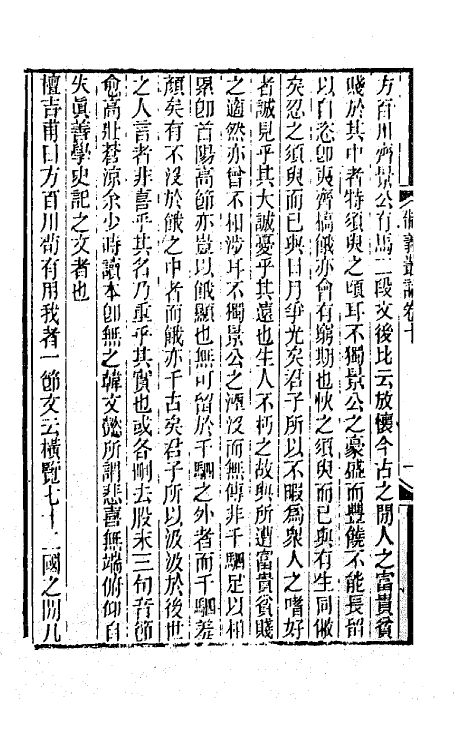 方百川齊景公有馬二段文後比云放懷今古之閒人之富貴貧
賤於其中者特須臾之頃耳不獨景公之豪盛而豐饒不能長留
以自恣卽夷齊槁餓亦會有窮期也快之須臾而已與有生同敝
矣忍之須臾而已與日月爭光矣君子所以不暇爲衆人之嗜好
者誠見乎其大誠憂乎其遠也生人不朽之故與所遭富貴貧賤
之適然亦曾不相涉耳不獨景公之湮沒而無傳非千駟足以相
累卽首陽高節亦豈以餓顯也無可留於千駟之外者而千駟羞
顏矣有不沒於餓之中者而餓亦千古矣君子所以汲汲於後世
之人言者非喜乎其名乃重乎其實也或各刪去股末三句音節
愈高壯蒼涼余少時讀本卽無之韓文懿所謂悲喜無端俯仰自
失眞善學史記之文者也
檀吉甫曰方百川苟有用我者一節文云橫覽七十二國之閒凡
制義叢話卷十
一